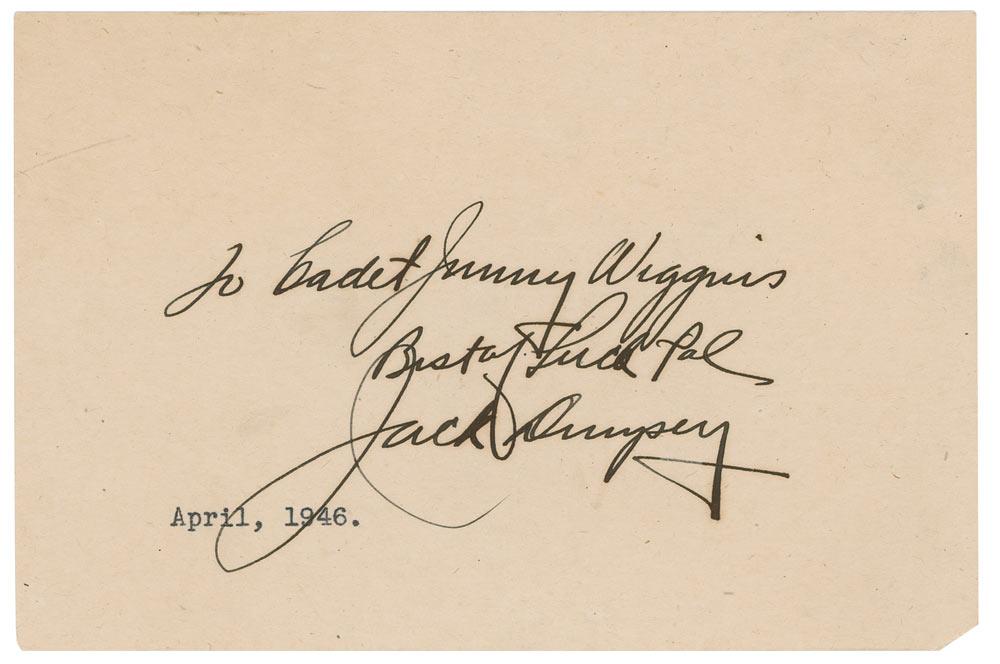 To Cadet Jimmy Wiggins
Best of Luck Pal
Jack Dempsey
April, 1946.